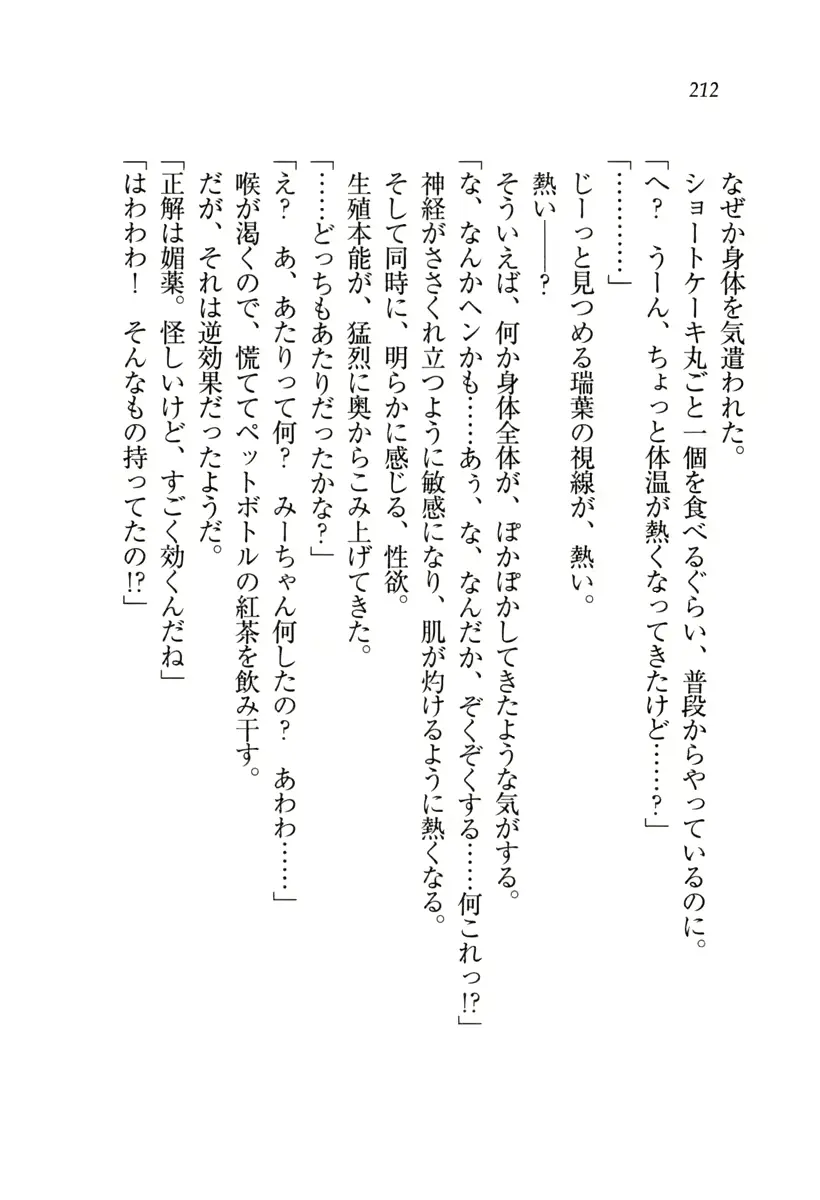 212
なぜか身体を気遣われた。
ショートケーキ丸ごと一個を食べるぐらい、普段からやっているのに。
「へ？　うーん、ちょっと体温が熱くなってきたけど……？」
「…………」
じーっと見つめる瑞葉の視線が、熱い。
熱い――？
そういえば、何か身体全体が、ぽかぽかしてきたような気がする。
「な、なんかヘンかも……あぅ、な、なんだか、ぞくぞくする……何これっ!?」
神経がささくれ立つように敏感になり、肌が灼けるように熱くなる。
そして同時に、明らかに感じる、性欲。
生殖本能が、猛烈に奥からこみ上げてきた。
「……どっちもあたりだったかな？」
「え？　あ、あたりって何？　みーちゃん何したの？　あわわ……」
喉が渇くので、慌ててペットボトルの紅茶を飲み干す。
だが、それは逆効果だったようだ。
「正解は媚薬。怪しいけど、すごく効くんだね」
「はわわわ！　そんなもの持ってたの!?」